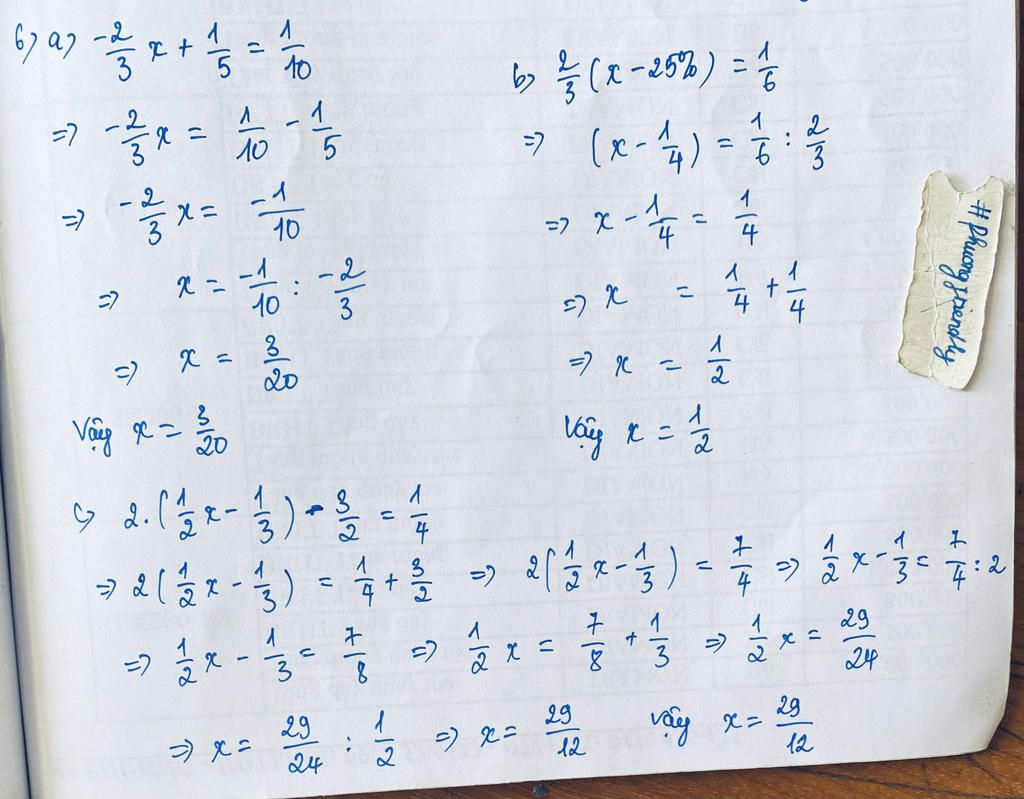 6) a) -2/3 x + 1/5 = 1/10
=> -2/3 x = 1/10 - 1/5
=> -2/3 x = -1/10
=> x = -1/10 : -2/3
=> x = 3/20
Vậy x = 3/20
b) 2/3 (x - 25%) = 1/6
=> (x - 1/4) = 1/6 : 2/3
=> x - 1/4 = 1/4
=> x = 1/4 + 1/4
=> x = 1/2
Vậy x = 1/2
c) 2.(1/2 x - 1/3) - 3/2 = 1/4
=> 2(1/2 x - 1/3) = 1/4 + 3/2 => 2(1/2 x - 1/3) = 7/4 => 1/2 x - 1/3 = 7/4 : 2
=> 1/2 x - 1/3 = 7/8 => 1/2 x = 7/8 + 1/3 => 1/2 x = 29/24
=> x = 29/24 : 1/2 => x = 29/12 Vậy x = 29/12
#phuongfriendly